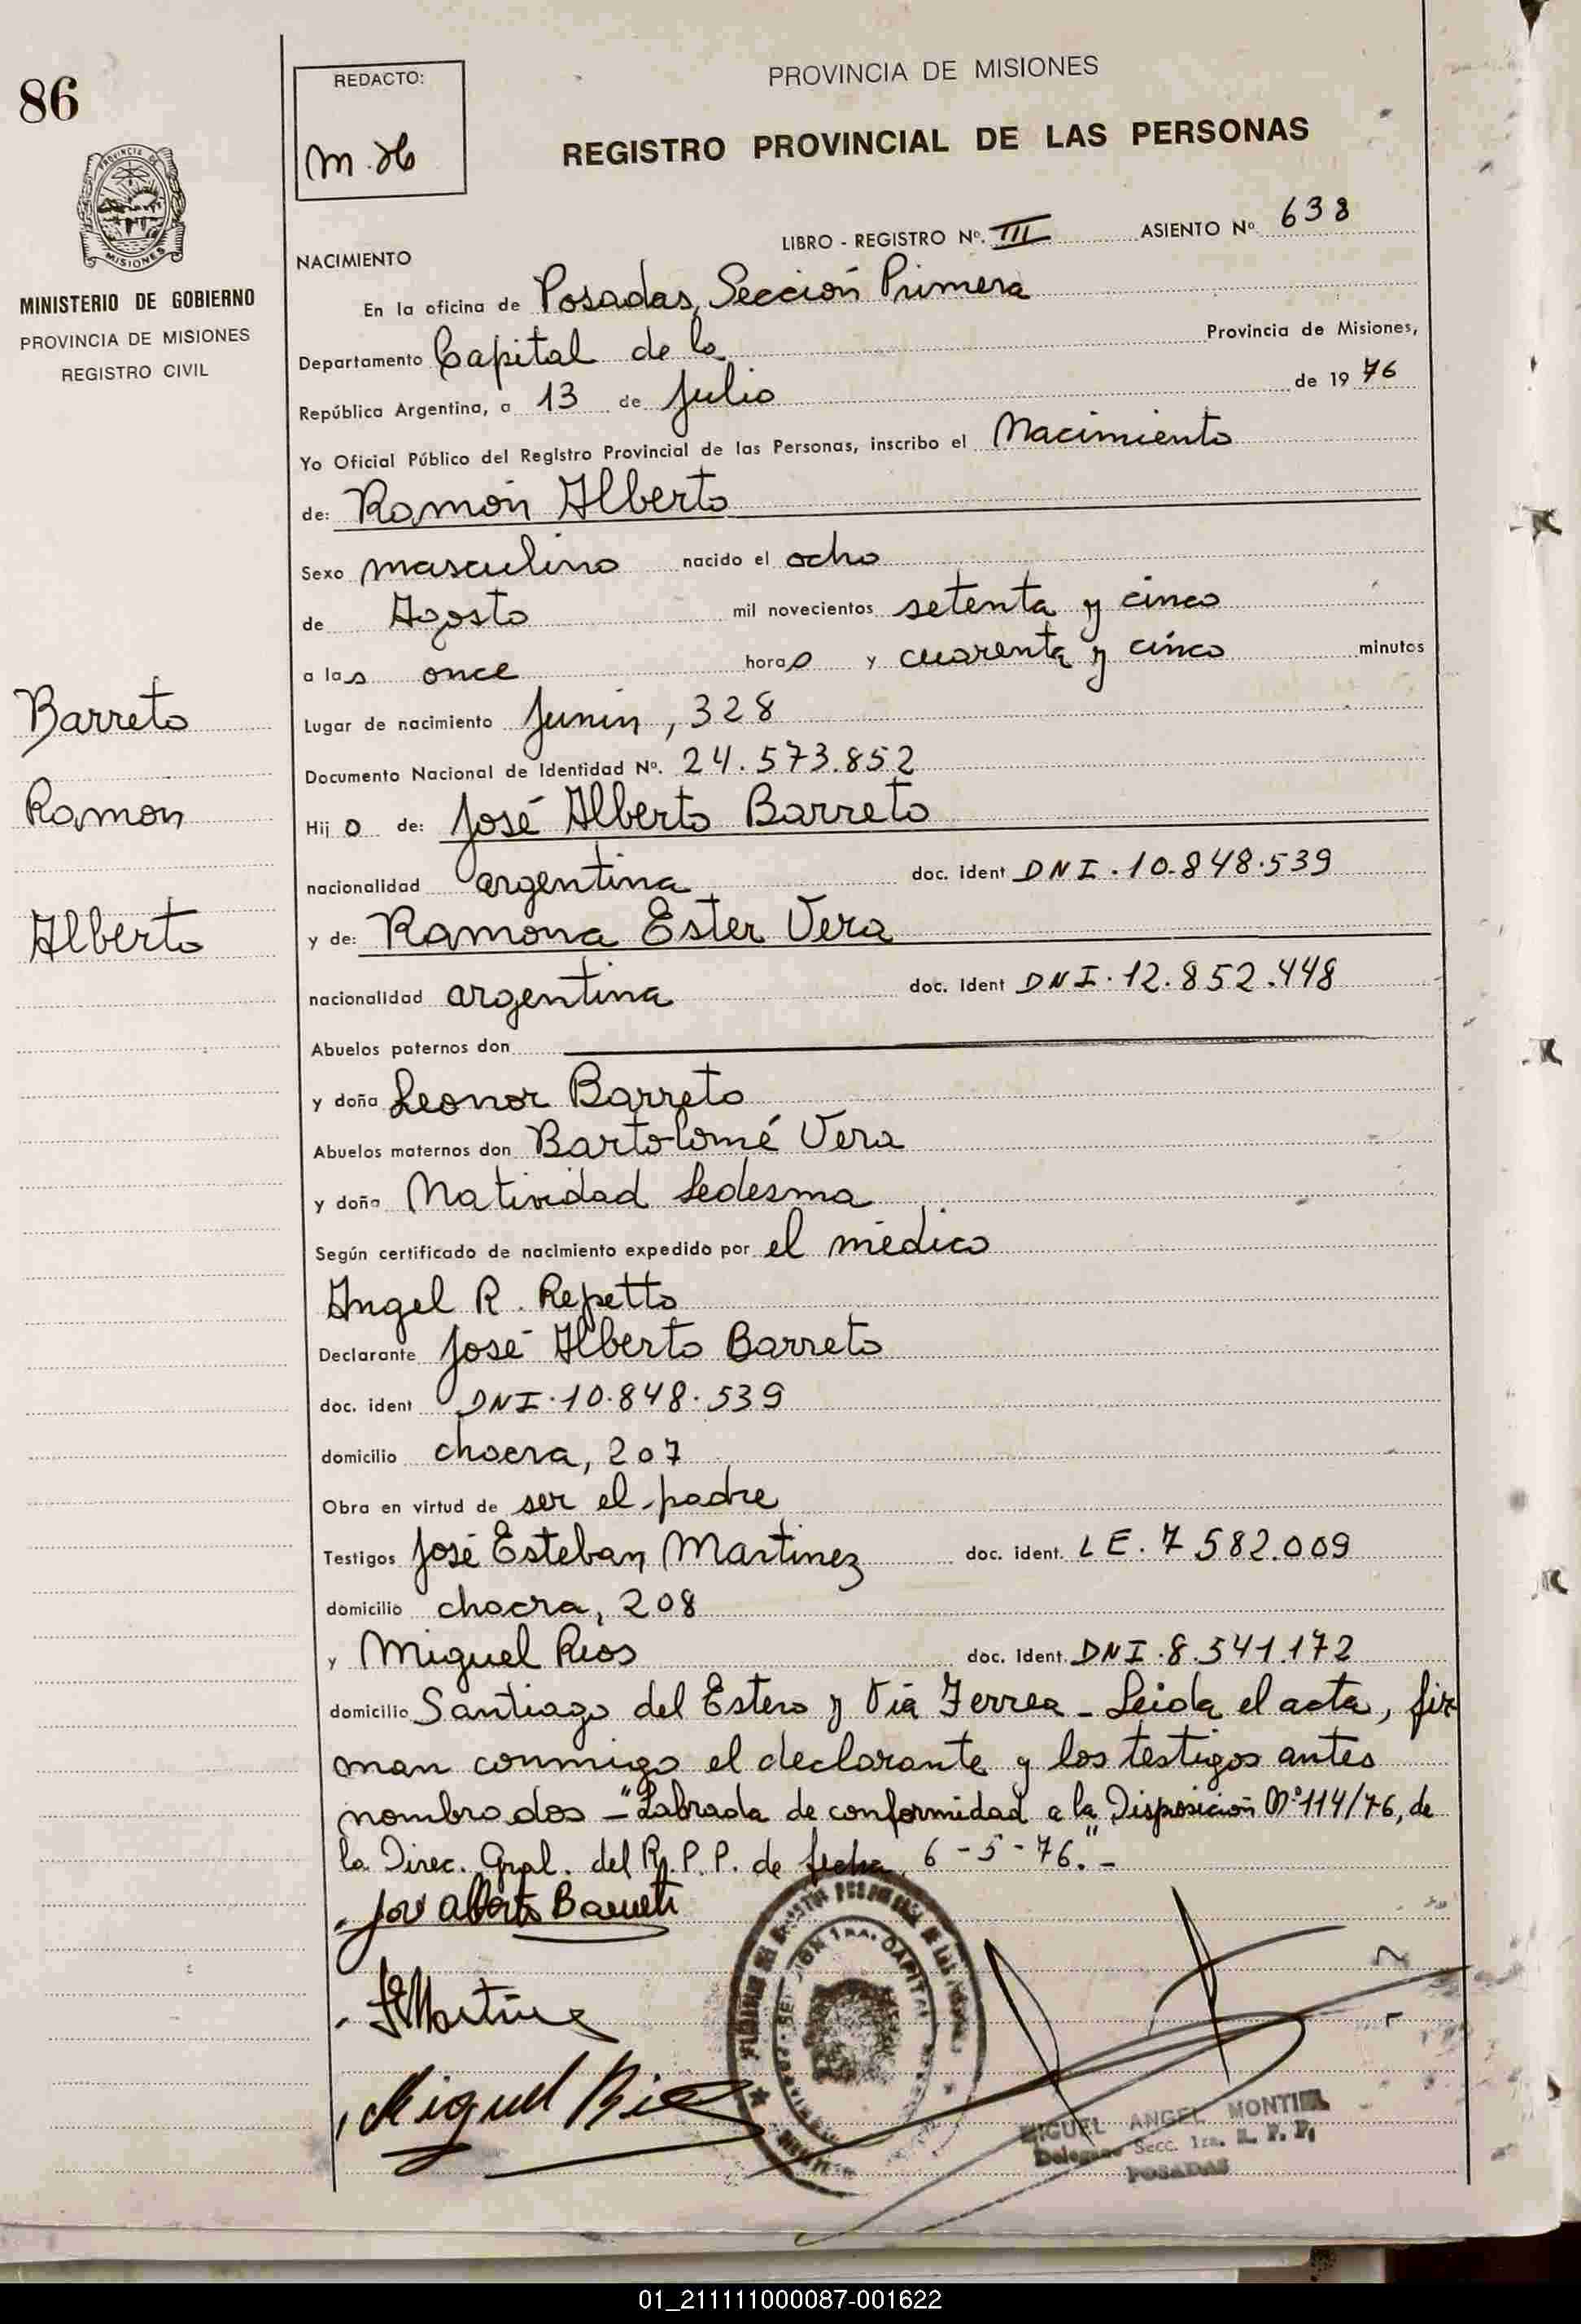 86
REDACTO:
M.H
PROVINCIA DE MISIONES
REGISTRO PROVINCIAL DE LAS PERSONAS
PROVINCIA DE
MISIONES
MINISTERIO DE GOBIERNO
PROVINCIA DE MISIONES
REGISTRO CIVIL
LIBRO - REGISTRO Nº. III ASIENTO Nº 638
NACIMIENTO
En la oficina de Posadas, Sección Primera
Departamento Capital de la Provincia de Misiones,
República Argentina, a 13 de Julio de 19 76
Yo Oficial Público del Registro Provincial de las Personas, inscribo el Nacimiento
de: Ramón Alberto
Sexo masculino nacido el ocho
de Agosto mil novecientos setenta y cinco
a las once horas y cuarenta y cinco minutos
Barreto
Ramon
Alberto
Lugar de nacimiento Junín, 328
Documento Nacional de Identidad Nº. 24.573.852
Hijo de: José Alberto Barreto
nacionalidad argentina doc. ident DNI.10.848.539
y de: Ramona Ester Vera
nacionalidad argentina doc. Ident DNI.12.852.448
Abuelos paternos don
y doña Leonor Barreto
Abuelos maternos don Bartolomé Vera
y doña Natividad Ledesma
Según certificado de nacimiento expedido por el médico
Angel R. Repetto
Declarante José Alberto Barreto
doc. ident DNI.10.848.539
domicilio chacra, 207
Obra en virtud de ser el padre
Testigos José Esteban Martinez doc. ident. LE. 7 582.009
domicilio chacra, 208
y Miguel Rios doc. Ident. DNI.8.341.172
domicilio Santiago del Estero y Vía Ferrea - Leida el acta, fir
man conmigo el declarante y los testigos antes
nombrados - "Labrada de conformidad a la Disposición Nº114/76, de
la Direc. Gral. del R.P.P. de fecha 6-5-76." -
José Alberto Barreto
JEMartinez
Miguel Rios
SECCION 1RA. CAPITAL
MIGUEL ANGEL MONTIEL
Delegado Secc. 1ra. R. P. P.
POSADAS
01_211111000087-001622